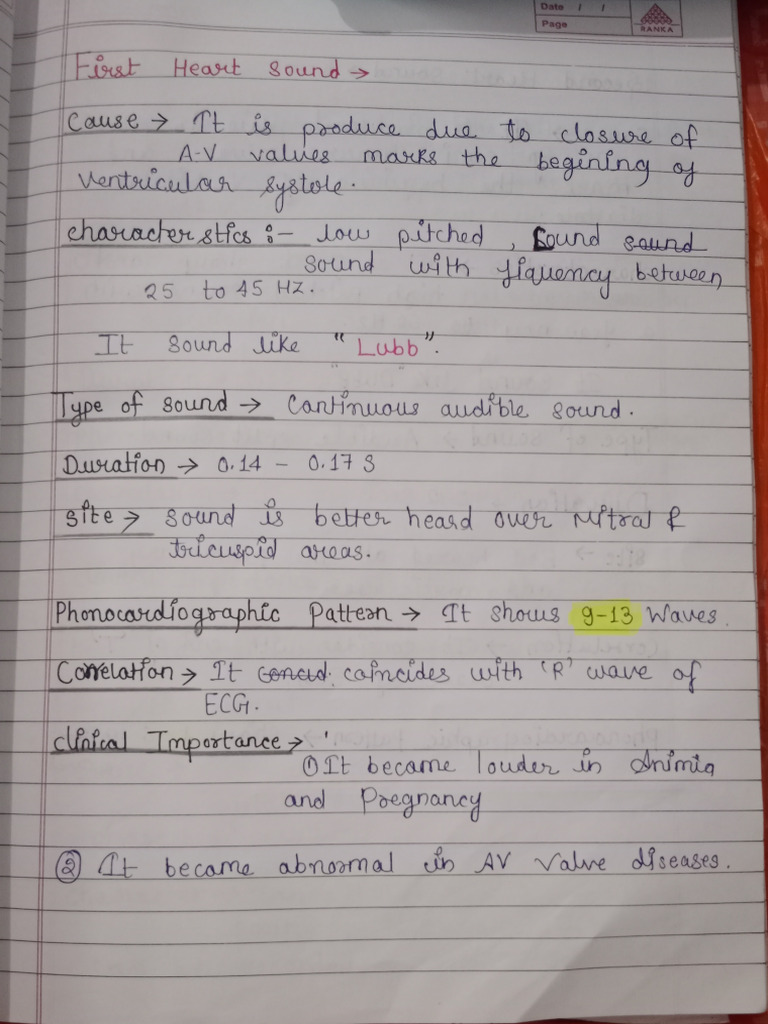 Date / /
Page
RANKA
First Heart Sound →
Cause → It is produce due to closure of
A-V values marks the begining of
ventricular systole.
characterstics :- low pitched, Sound sound
sound with fiquency between
25 to 45 HZ.
It sound like "Lubb".
Type of sound → Continuous audible sound.
Duration → 0.14 - 0.17 S
site → sound is better heard over Mitral &
tricuspid areas.
Phonocardiographic Pattern → It shows 9-13 Waves.
Correlation → It coincides with 'R' wave of
ECG.
clinical Importance →
① It became louder in Animia
and Pregnancy
② It became abnormal in AV valve diseases.